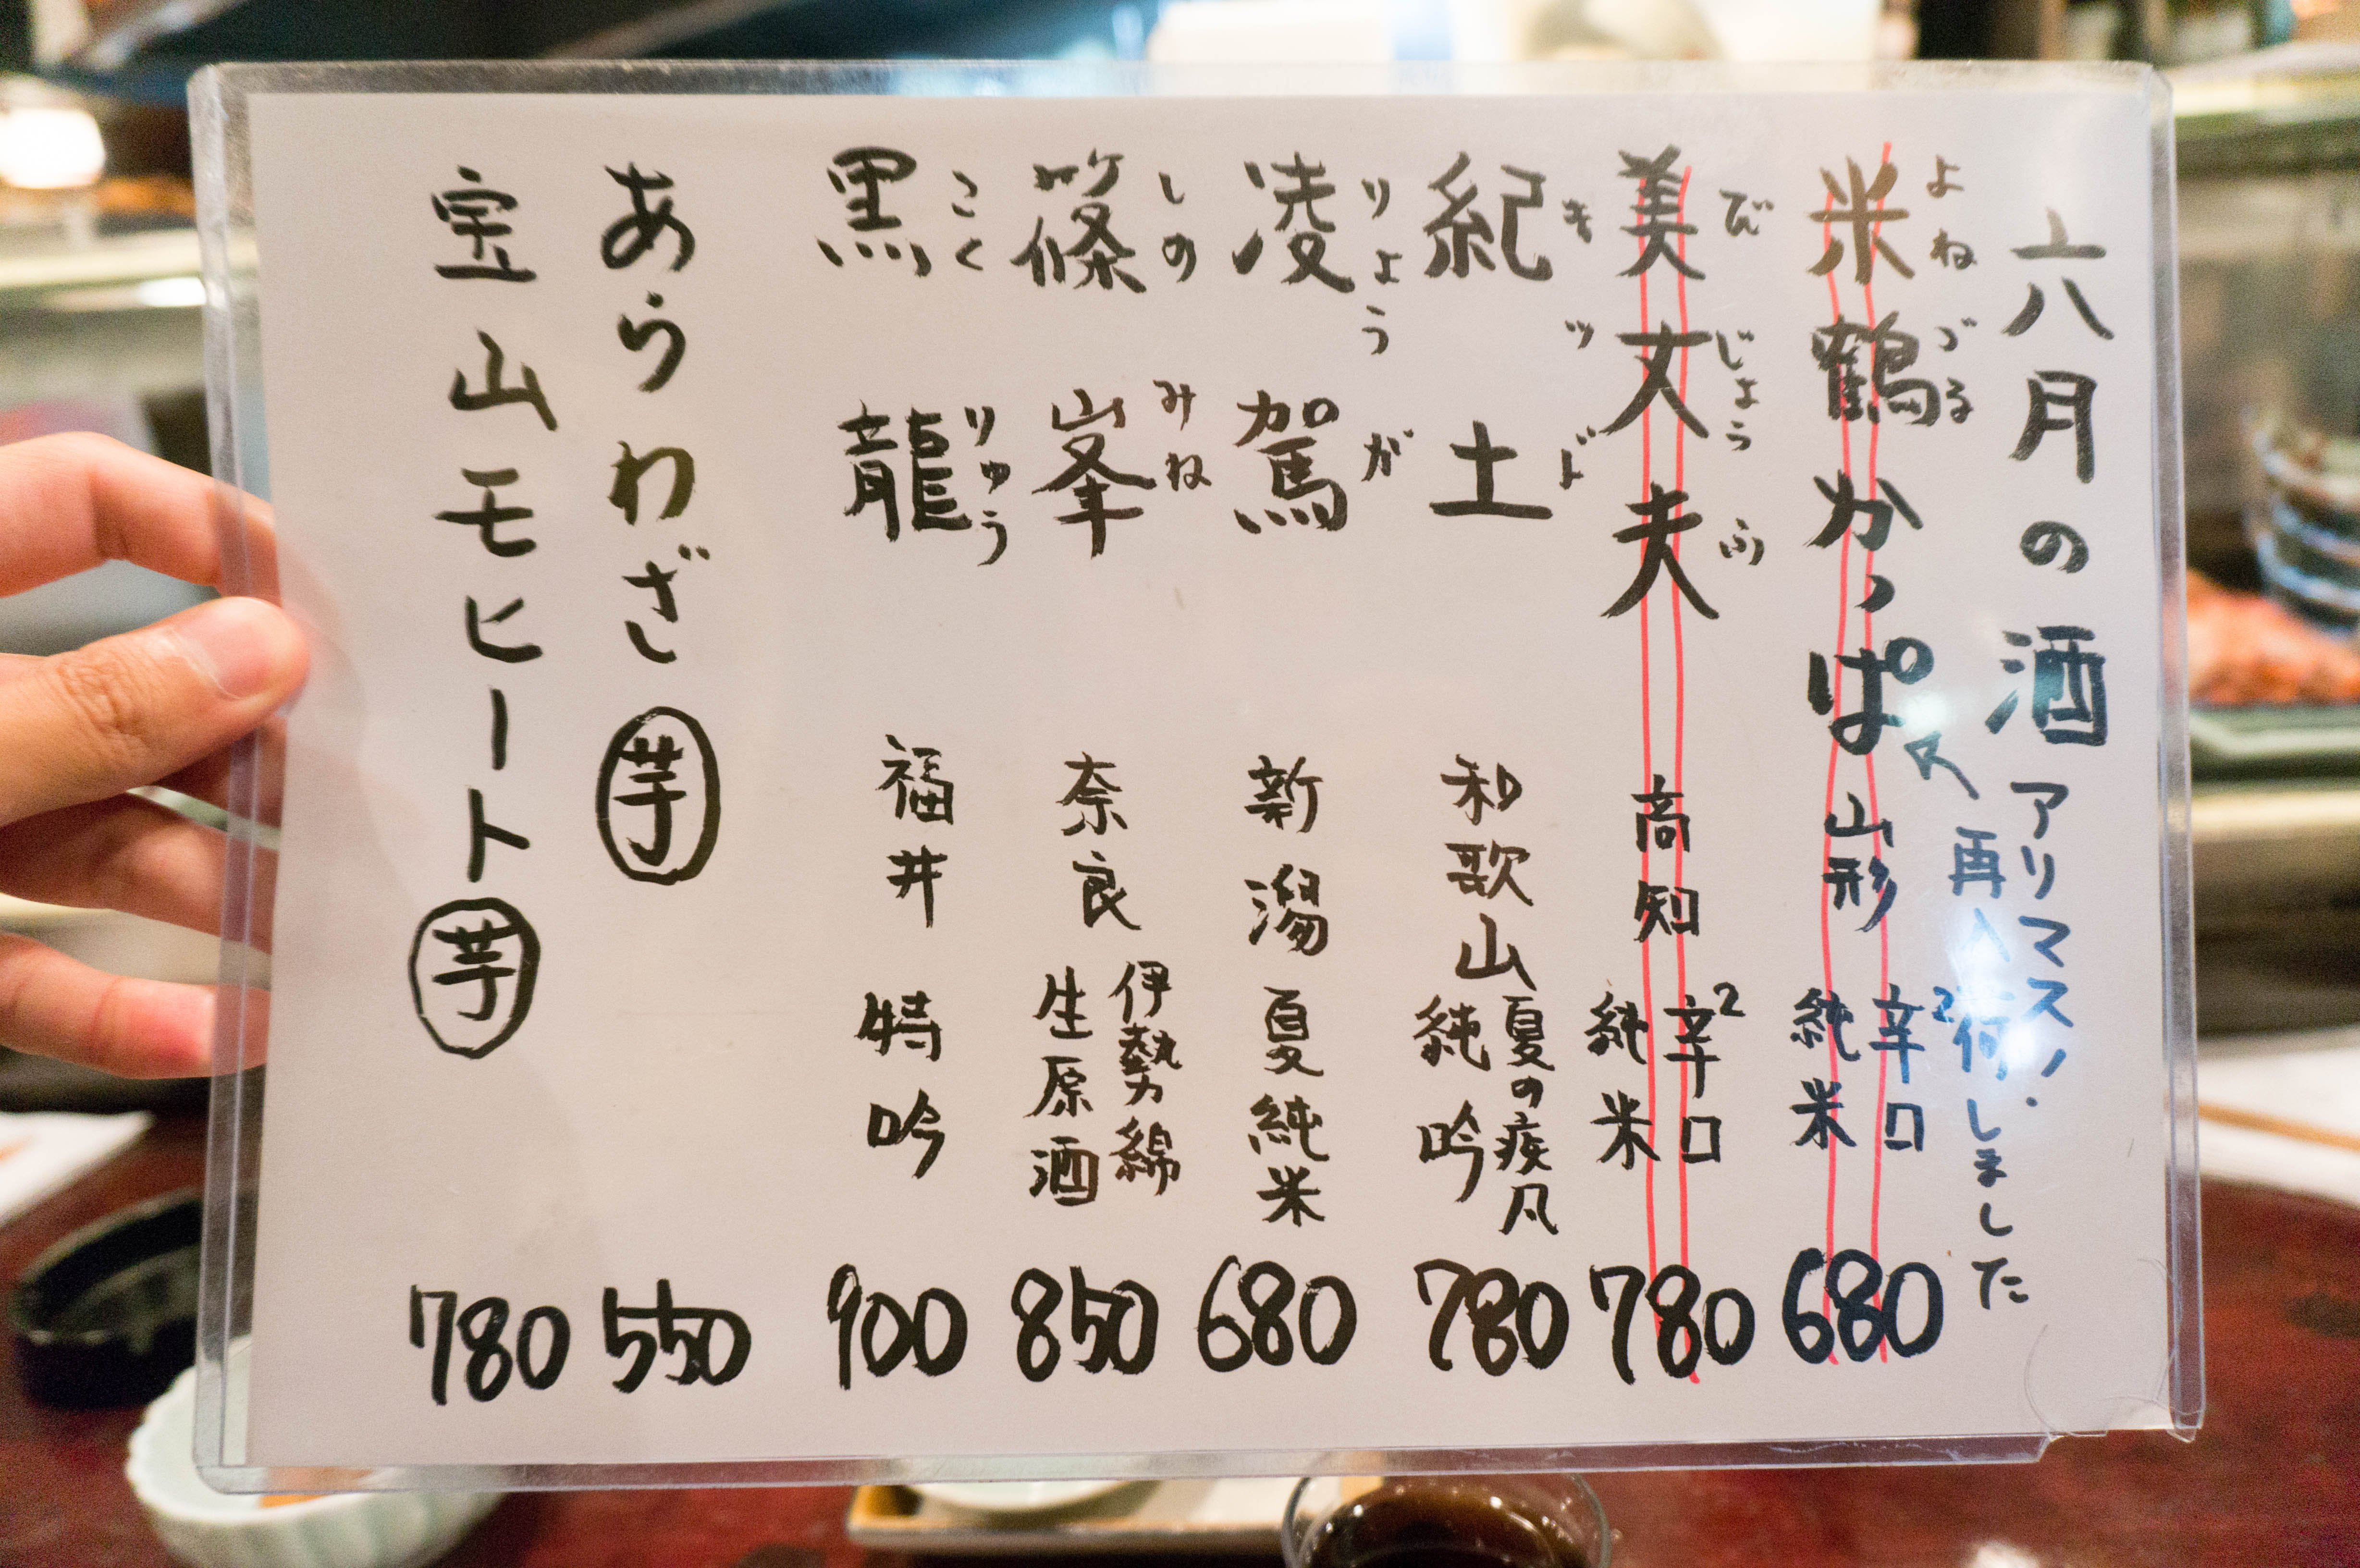 六月の酒 アリマスノ.
再入荷しました
米鶴かっぱ 山形 辛口2 純米 680
よねづる
美丈夫 高知 辛口2 純米 780
びじょうふ
紀土 和歌山 夏の疾風 純吟 780
きッど
凌駕 新潟 夏純米 680
りょうが
篠峯 奈良 伊勢錦 生原酒 850
しのみね
黒龍 福井 特吟 900
こくりゅう
あらわざ 芋 550
宝山モヒート 芋 780